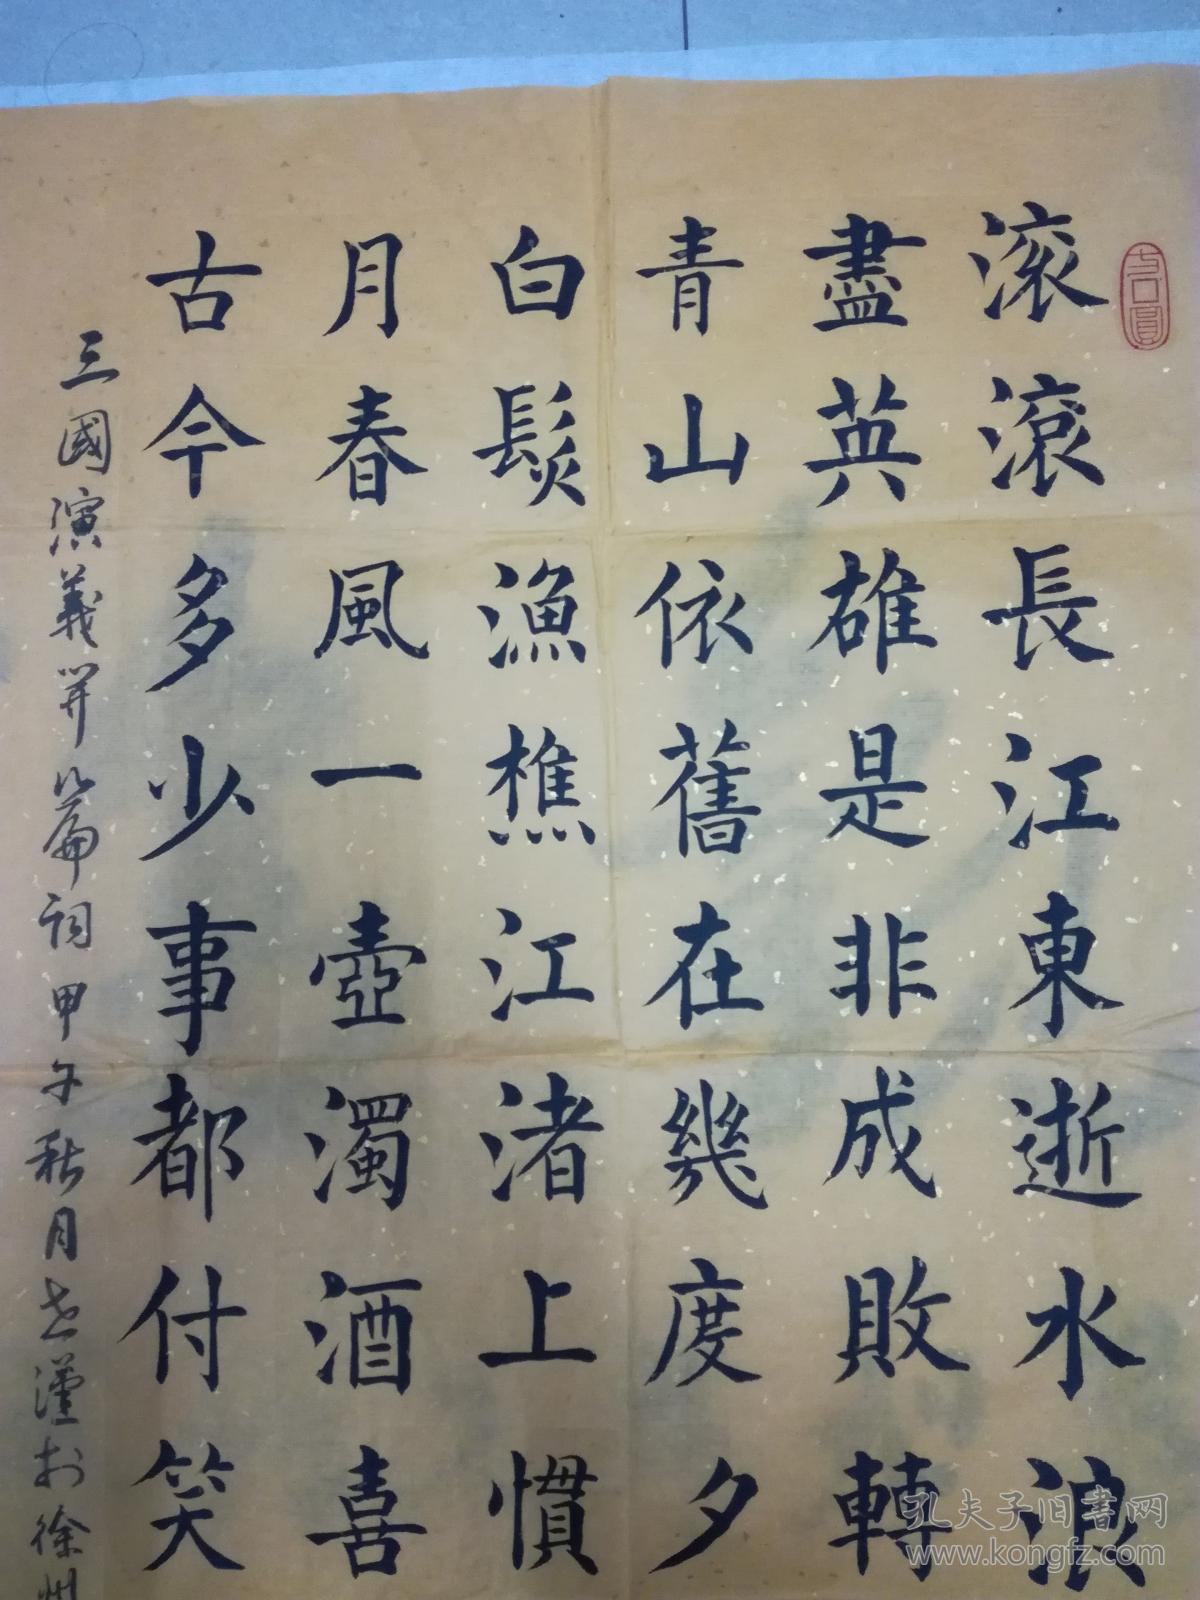 滚滚長江東逝水浪
盡英雄是非成敗轉
青山依舊在幾度夕
白髮漁樵江渚上慣
月春風一壺濁酒喜
古今多少事都付笑
三國演義開篇詞甲午秋月志漢於徐州
孔夫子旧书网
www.kongfz.com